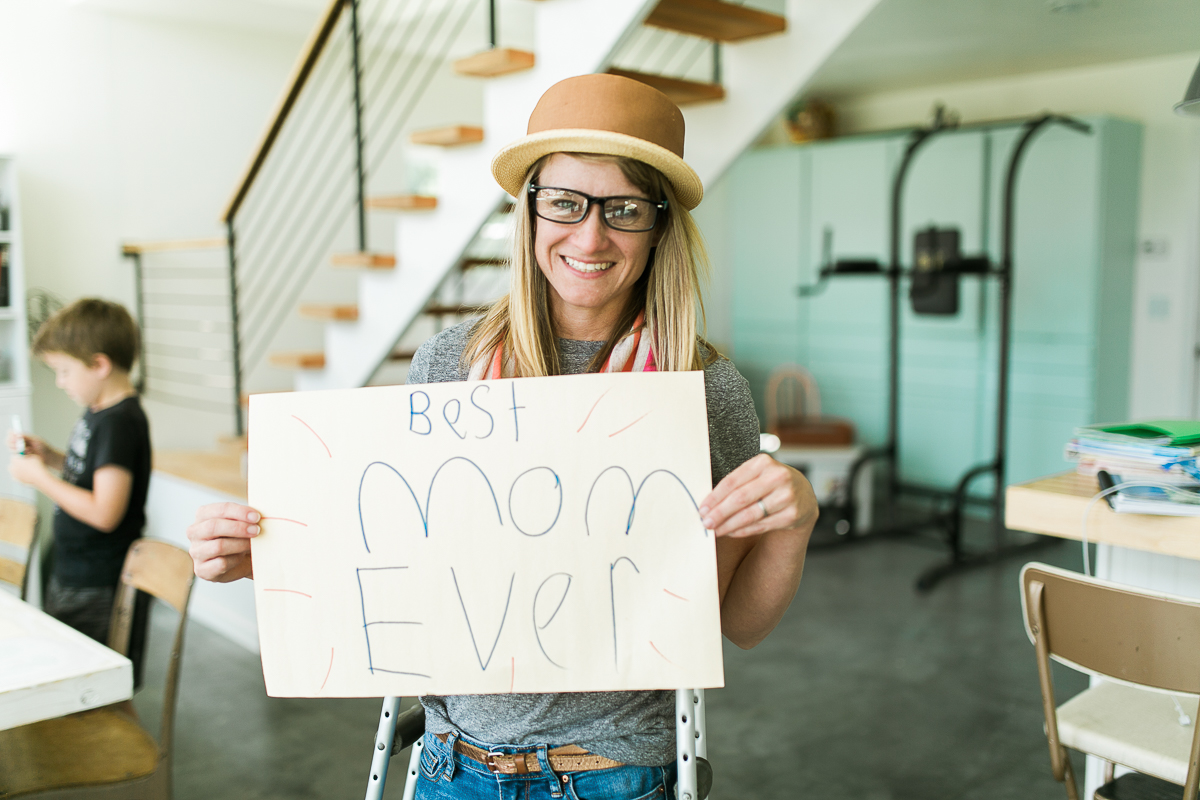 Best
Mom
Ever